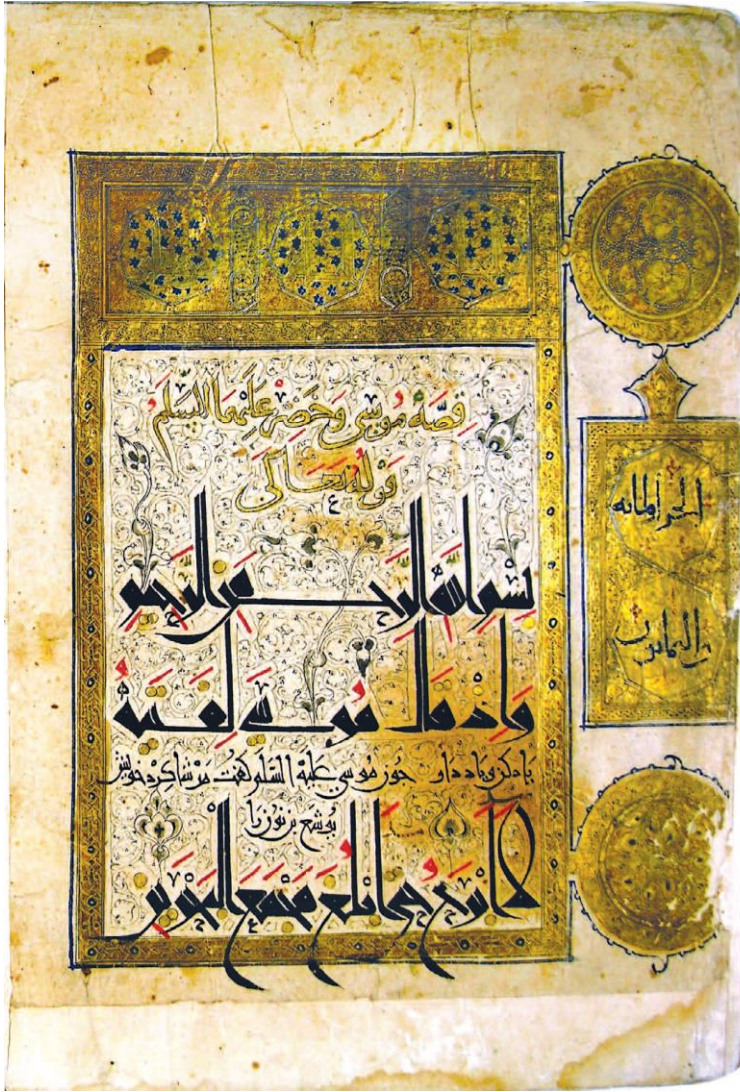 قصة موسى وخضر عليهما السلم
قوله تعالى
ع
بسم الله الرحمن الرحيم
وإذ قال موسى لفتىه
یاد کن و یاد داو حون موسی علیه السلم کفت مر شاکرد خویش
یوشع بن نون را
لا أبرح حتى أبلغ مجمع البحرين
الجز المائه
والثمانون